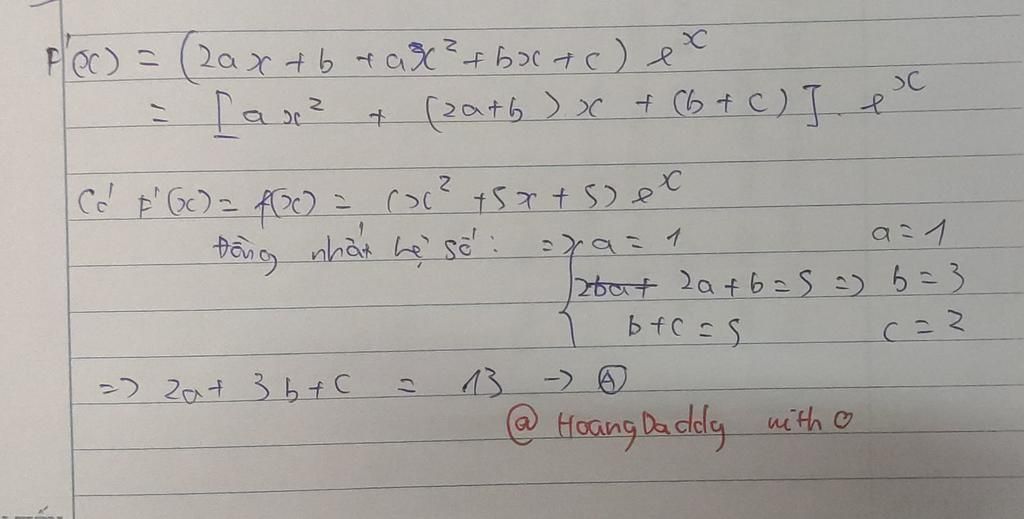 F'(x) = (2ax + b + ax² + bx + c) eˣ
= [ax² + (2a+b)x + (b+c)] eˣ
Có F'(x) = f(x) = (x² + 5x + 5) eˣ
Đồng nhất hệ số: => { a = 1 a = 1
2a + b = 5 => b = 3
b + c = 5 c = 2
=> 2a + 3b + c = 13 -> Ⓐ
@ HoangDaddy with